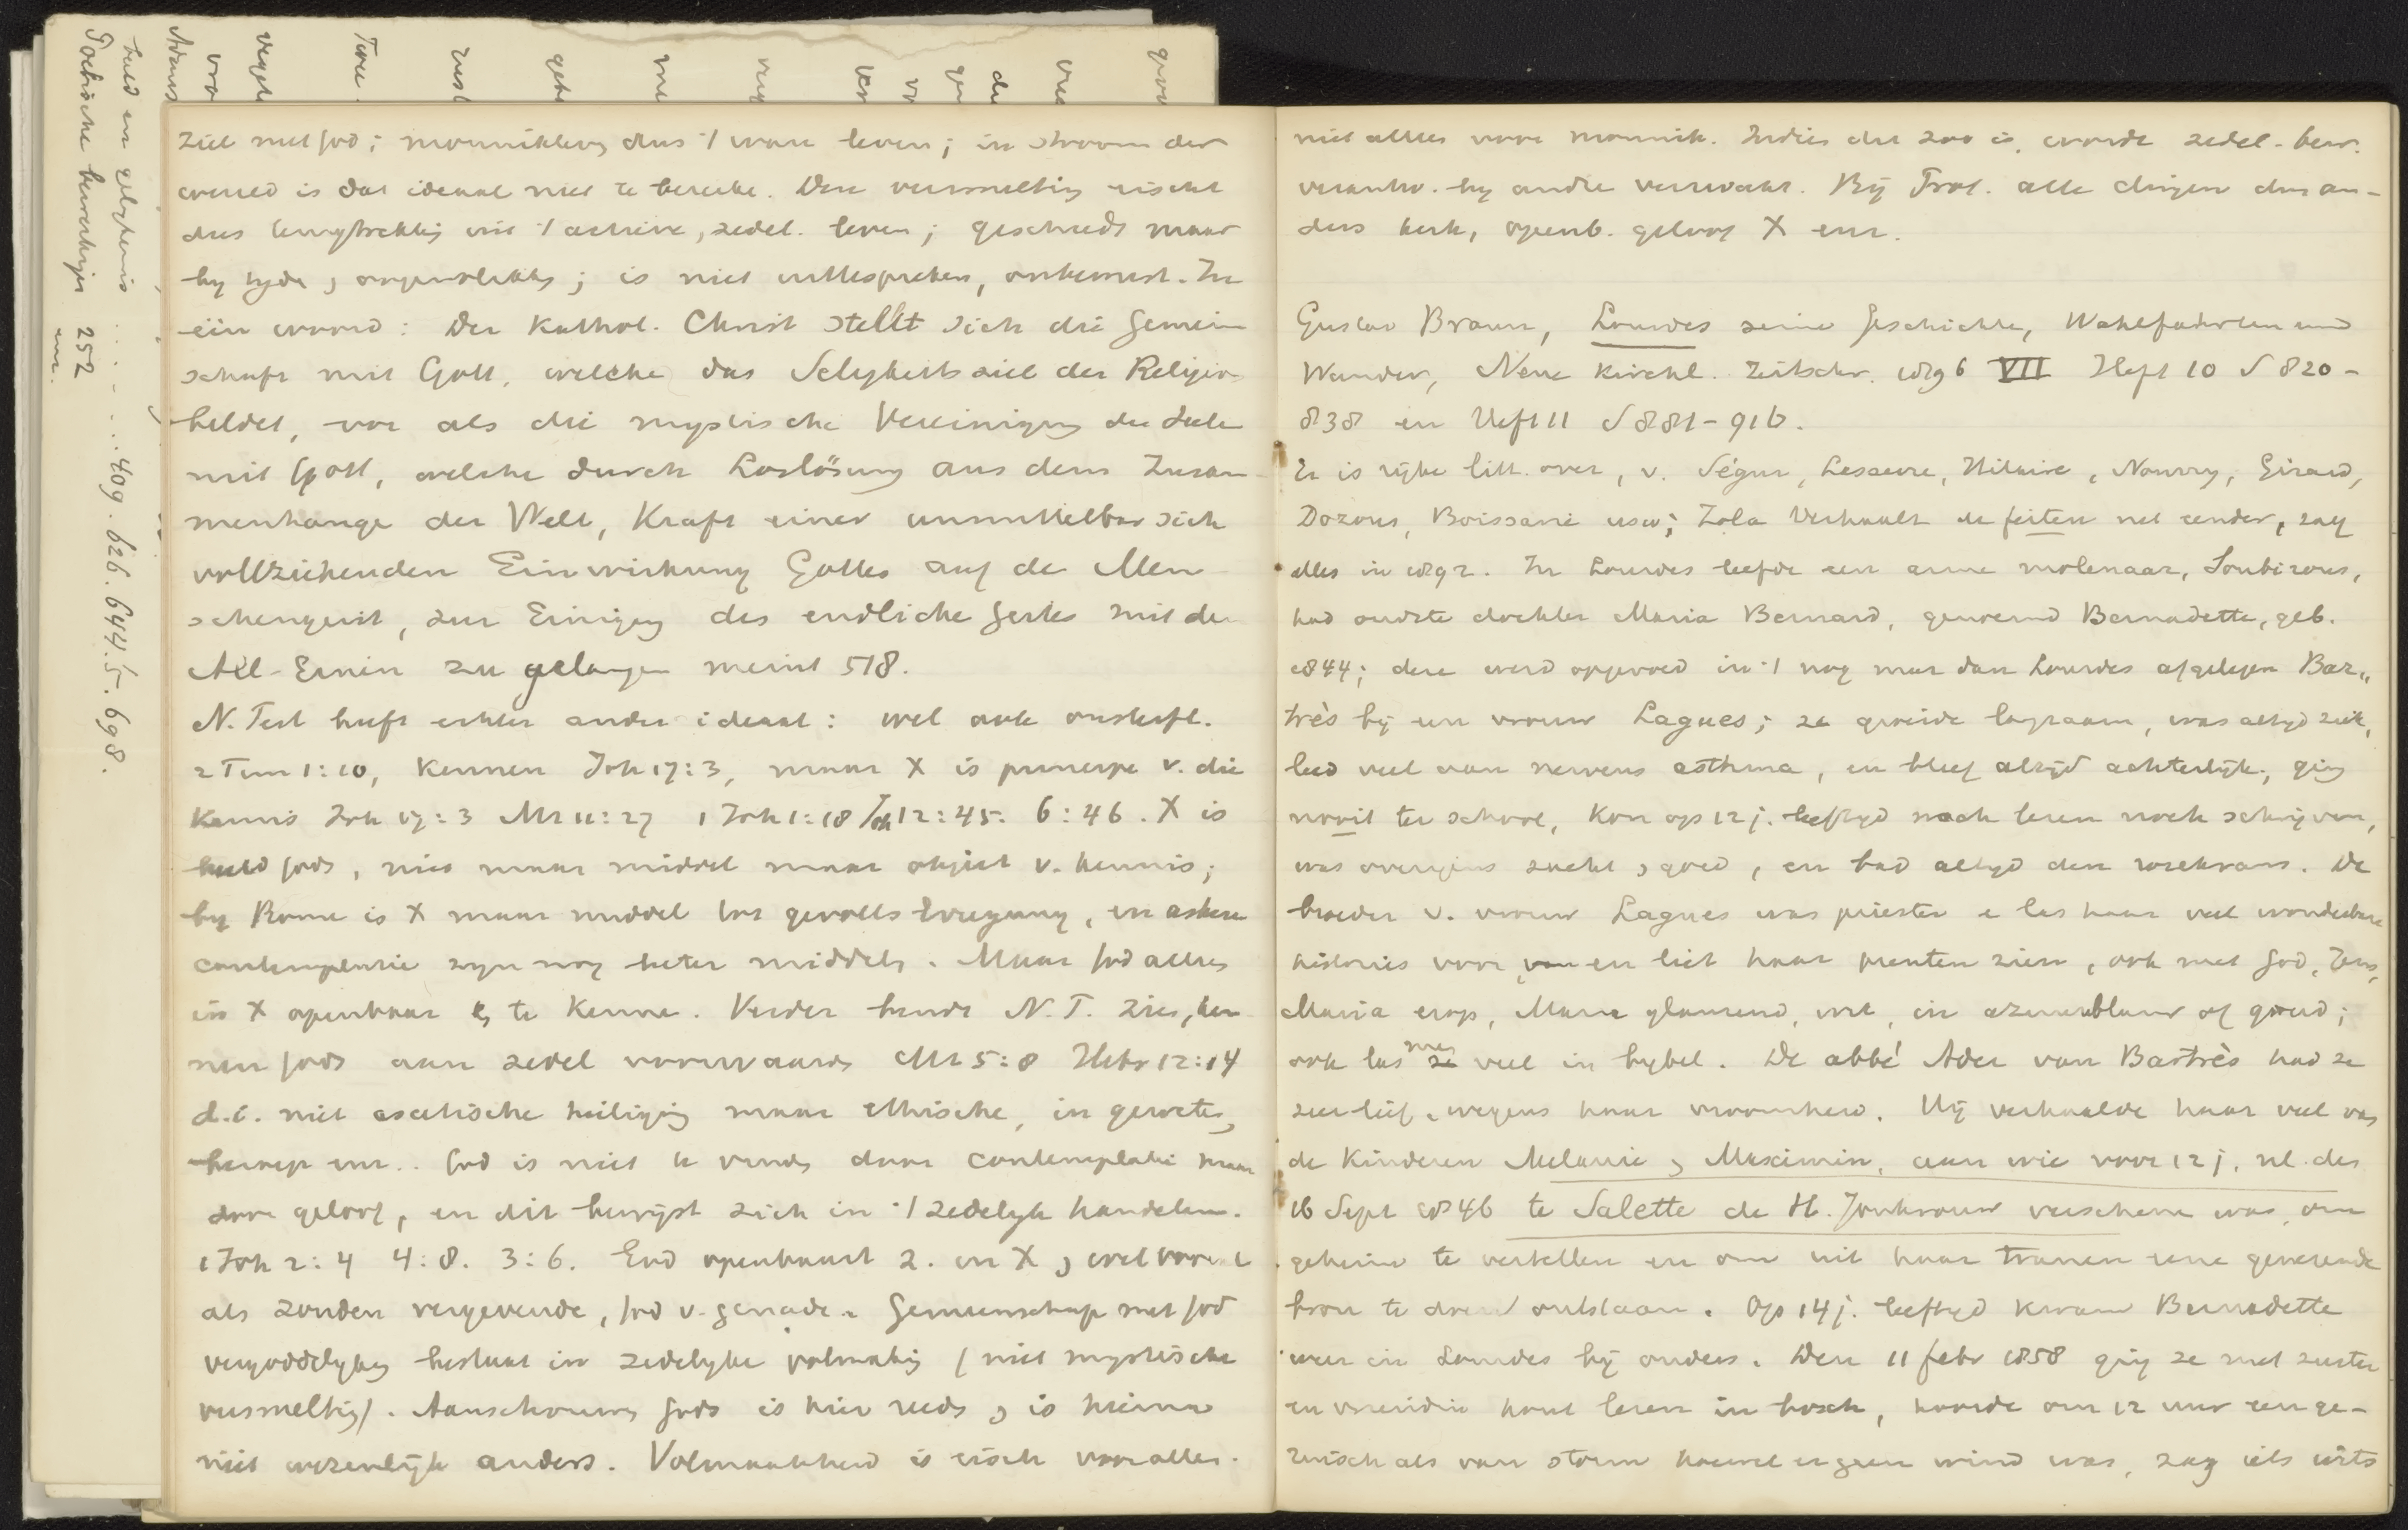 ziel met God; monnikleven dus 't ware leven; in stroom der
wereld is dat ideaal niet te bereike. Deze versmelting eischt
dus terugtrekking uit 't actieve, zedel. leven; geschiedt maar
by tyde, oogenblikkig; is niet uittespreken, onbewust. In
één woord: Der Kathol. Christ stellt sich die Gemein
schaft mit Gott, welche das Seligkeitsziel der Religion
bildet, vor als die mystische Vereinigung der Seele
mit Gott, welche durch Loslösung aus dem Zusam-
menhange der Welt, Kraft einer unmittelbar sich
vollziehenden Einwirkung Gottes auf de Men
schengeist, zur Einigung des endliche Geistes mit de
All-Einen zu gelangen meint 518.
N. Test heeft echter ander ideaal: wel ook onsterfl.
2 Tim 1:10, Kennen Joh 17:3, maar X is principe v. die
Kennis Joh 17:3 Mt 11:27 1 Joh 1:18 Joh 12:45. 6:46. X is
beeld Gods, niet maar middel maar object v. kennis;
by Rome is X maar middel tot gevoels Erregung, en askese
contemplatie zyn nog beter middels. Maar God alles
in X openbaar en te Kenne. Verder bindt N.T. zien, ken
nen Gods aan zedel voorwaards Mt 5:8 Hebr 12:14
d.i. niet ascetische heiliging maar ethische, in geweten,
beroep enz.. God is niet te vinde door contemplatie maar
door geloof, en dit bewijst zich in 't zedelyk handelen.
1 Joh 2:4 4:8. 3:6. God openbaart z. in X, wel vooral
als zonden vergevende, God v. genade. Gemeenschap met God
vergoddelyking bestaat in zedelyke volmaking (niet mystische
versmelting). Aanschouwing Gods is hier reeds, is hierna
niet wezenlijk anders. Volmaaktheid is eisch voor alle.
niet alleen voor monnik. Indien dit zoo is, wordt zedel. bew.
verantw. by andre verzwakt. Bij Prot. alle dingen dus an-
ders kerk, openb. geloof X enz.
Gustav Braun, Lourdes seine Geschichte, Wahlfahrten und
Wunder, Neue Kirchl. Zeitschr. 1896 VII Heft 10 S 820-
838 en Heft 11 S 881-916.
Er is rijke litt. over, v. Ségur, Lasserre, Hilaire, Nourry, Girard,
Dozous, Boissarie usw; Zola verhaalt de feiten niet eender, zag
alles in 1892. In Lourdes leefde een arme molenaar, Soubirous,
had oudste dochter Maria Bernard, genoemd Bernadette, geb.
1844; deze werd opgevoed in 't nog meer dan Lourdes afgelegen Bar„
très bij een vrouw Lagues; ze groeide langzaam, was altyd ziek,
leed veel aan nerveus asthma, en bleef altijd achterlijk, ging
nooit ter school, kon op 12 j. leeftyd noch lezen noch schrijven,
was overigens zacht, goed, en bad altyd den rozekrans. De
broeder v. vrouw Lagues was priester e las haar veel wonderbare
histories voor, en liet haar prenten zien, ook met God, Jezus,
Maria erop, Maria glanzend, wit, in azuurblauw of goud;
ook las men ze veel in bybel. De abbé Ader van Bartrès had ze
zeer lief, wegens haar vroomheid. Hij verhaalde haar veel van
de Kinderen Melanie, Maximin, aan wie voor 12 j. nl. des
16 Sept 1846 te Salette de H. Jonkvrouw verschenen was, om
geheim te vertellen en om uit haar tranen eene genezende
bron te doen ontstaan. Op 14 j. leeftyd kwam Bernadette
weer in Lourdes bij ouders. Den 11 febr 1858 ging ze met zuster
en vriendin hout lezen in bosch, hoorde om 12 uur een ge-
ruisch als van storm hoewel er geen wind was, zag iets wits
beeld en gelykenis . . . . 409. 626. 644. 5. 698.
252
enz.